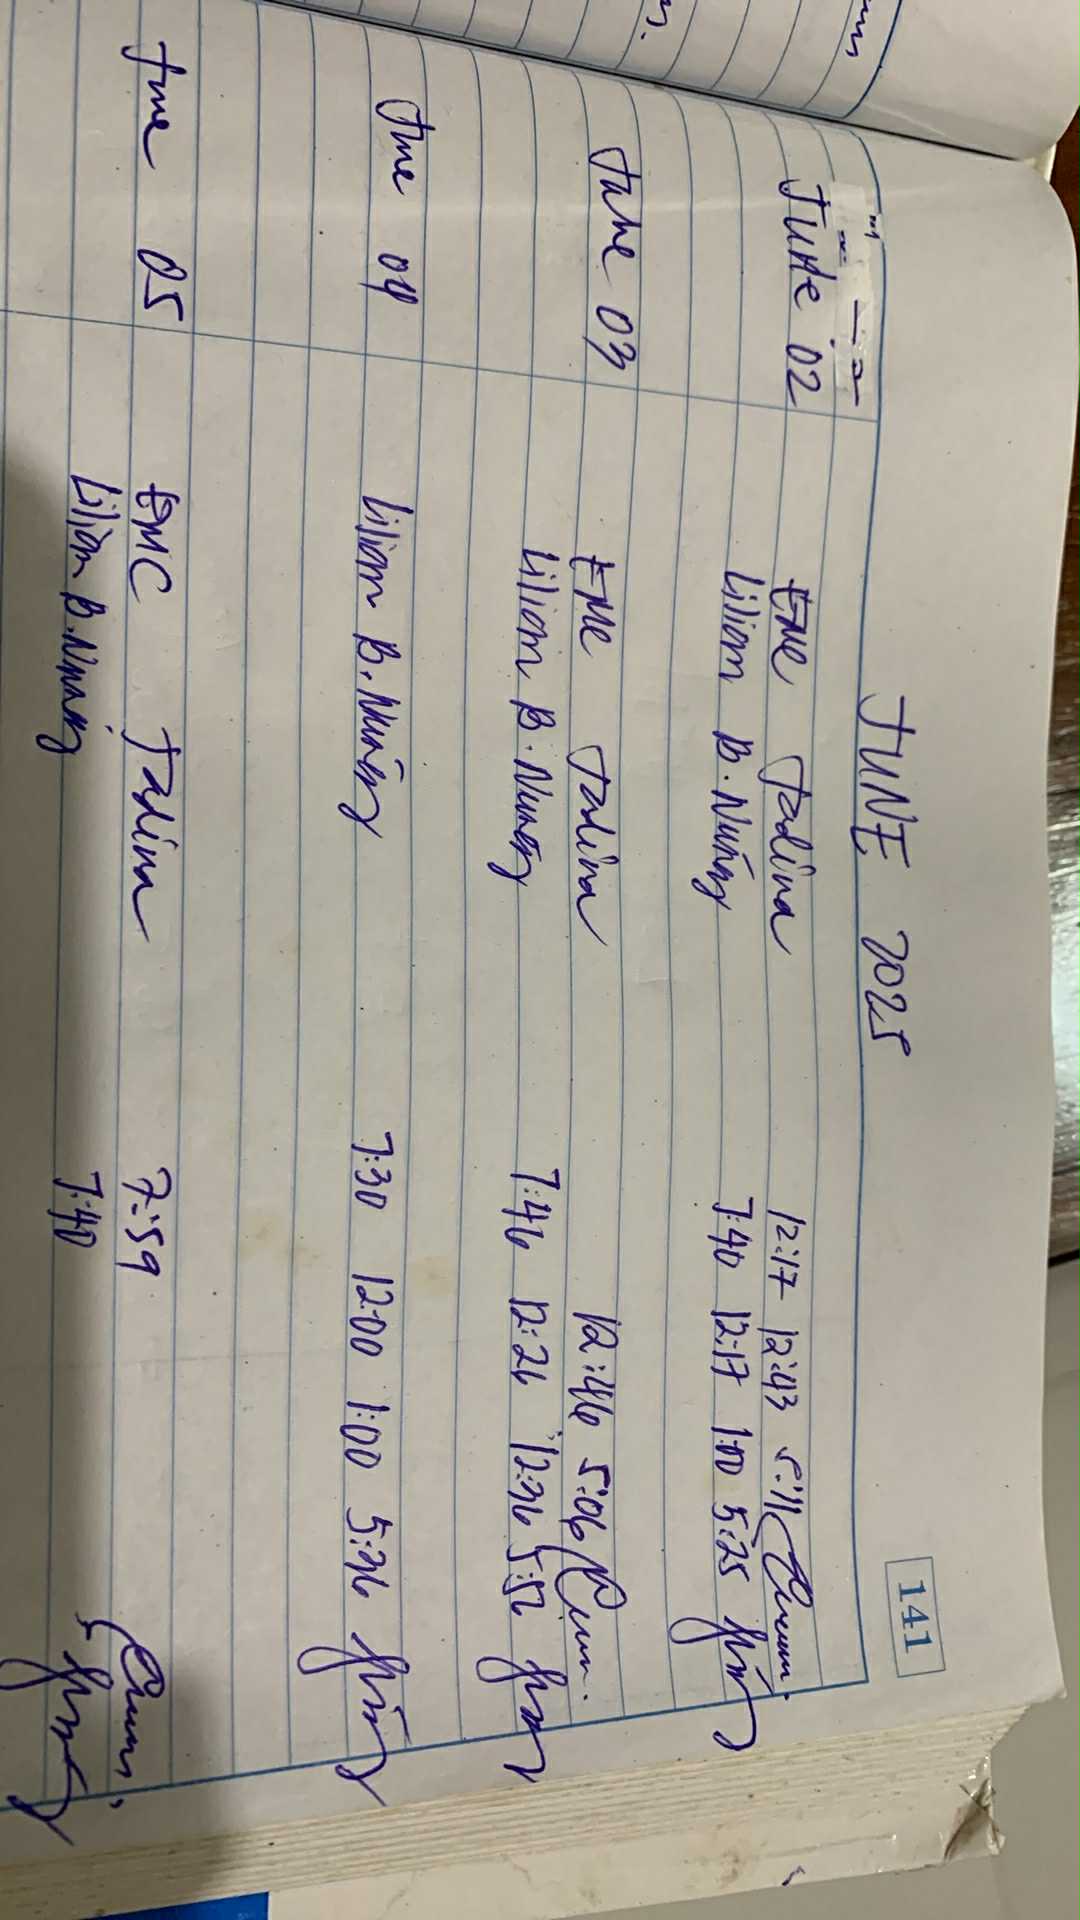 141
JUNE 2025
June 02 EMC Tadina 12:17 12:43 5:11
Liliom B. Nuñez 7:40 12:17 1:00 5:25
June 03 EMC Tadina 12:46 5:06
Liliom B. Nunez 7:46 12:26 12:36 5:52
June 04 Liliom B. Nuñez 7:30 12:00 1:00 5:36
June 05 EMC Tadina 7:59
Liliom B. Nunez 7:40